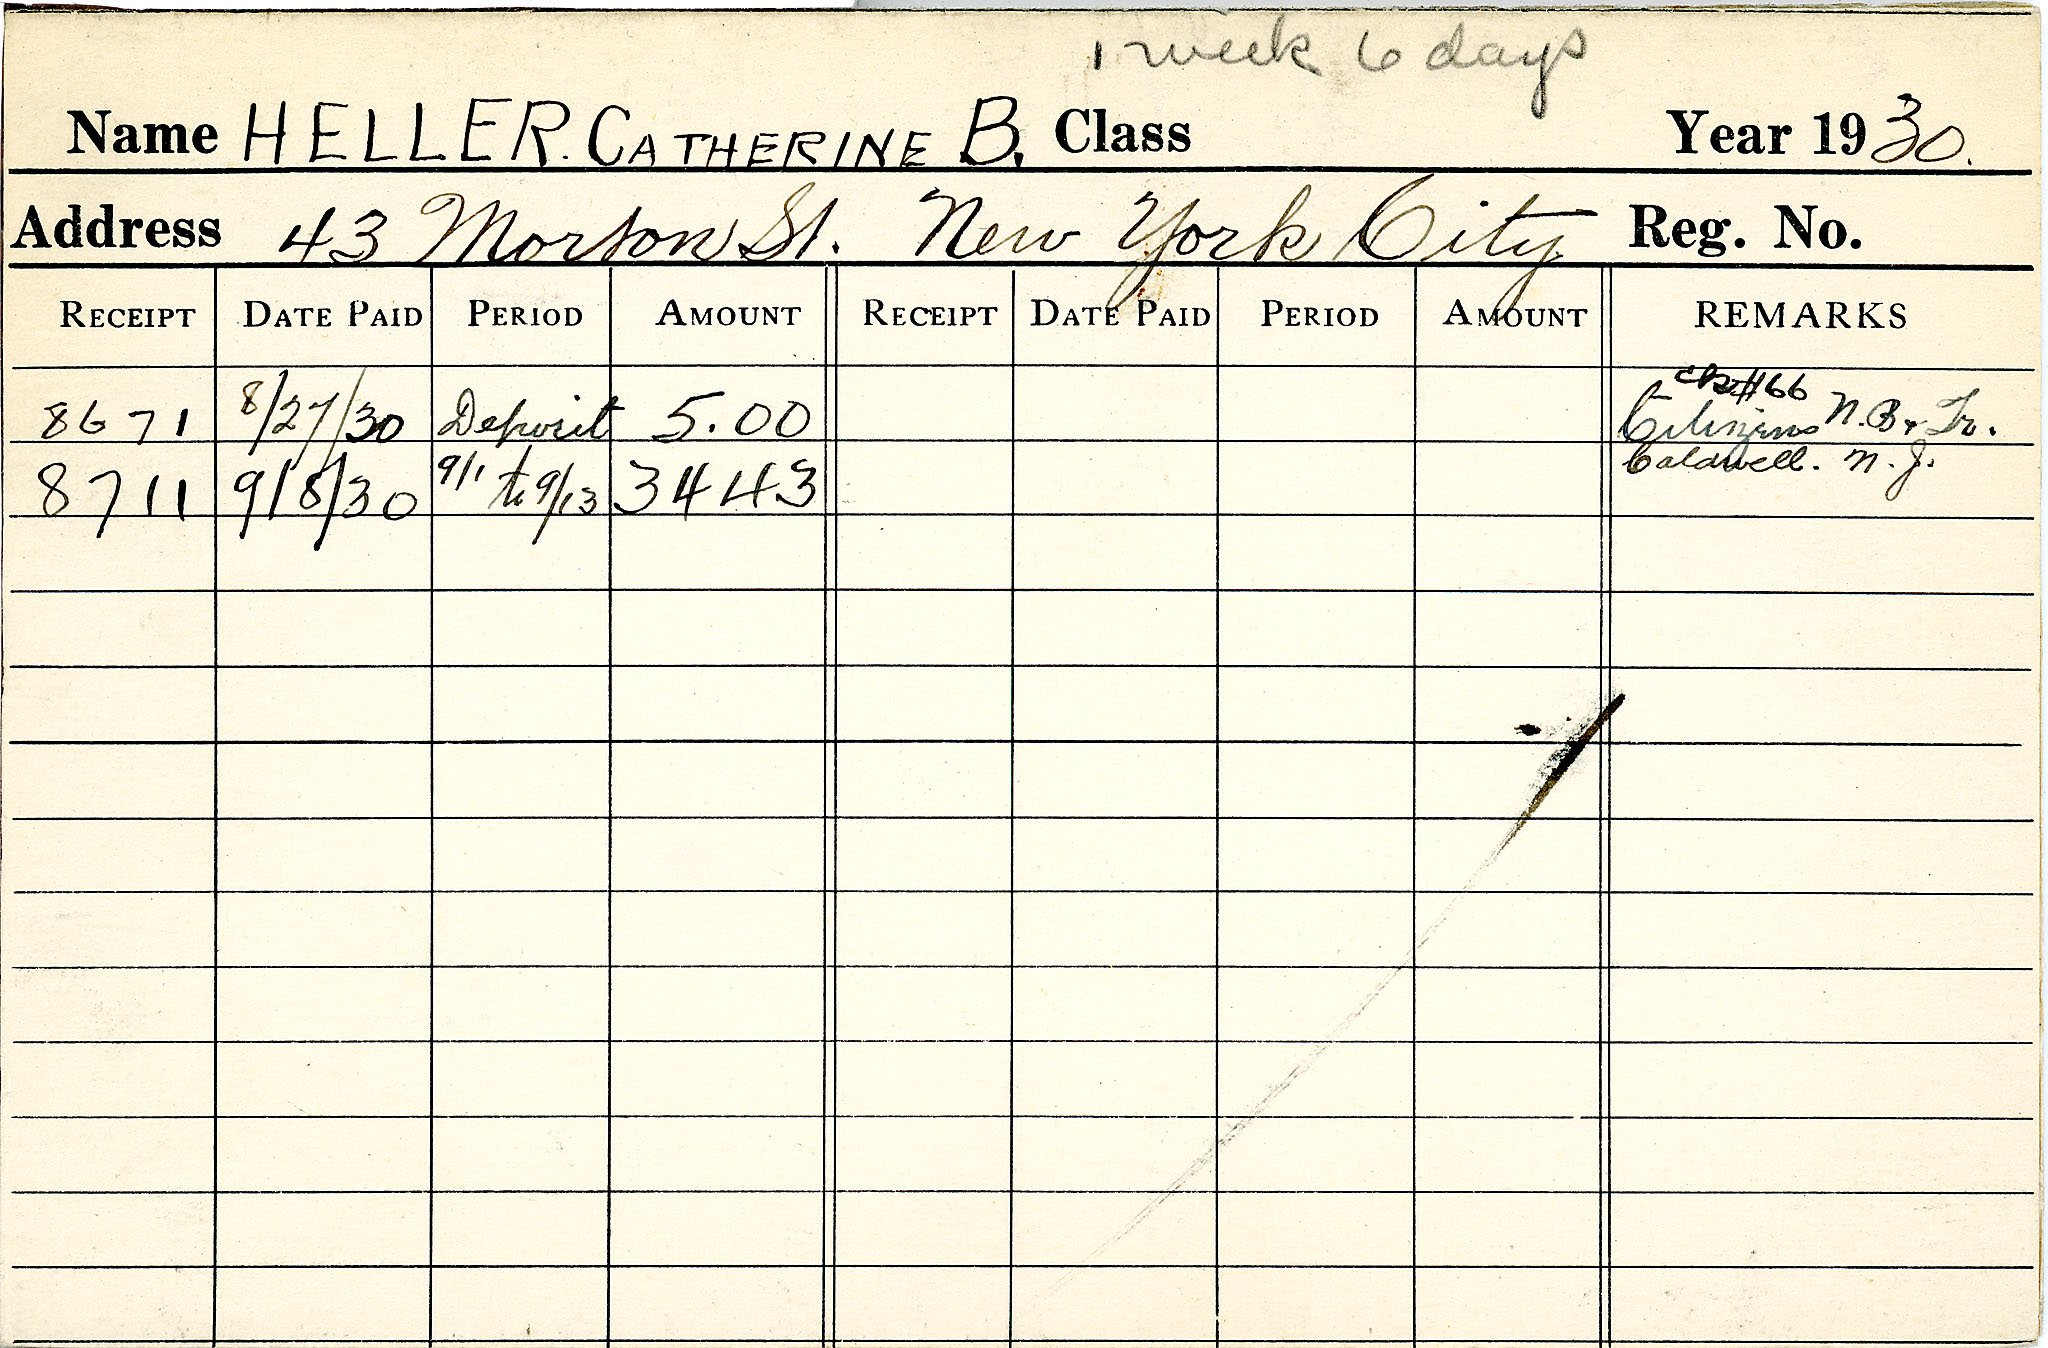 1 week 6 days
Name HELLER. CATHERINE B. Class Year 1930.
Address 43 Morton St. New York City Reg. No.
RECEIPT DATE PAID PERIOD AMOUNT RECEIPT DATE PAID PERIOD AMOUNT REMARKS
ck #66
8671 8/27/30 Deposit 5.00 Citizens N.B. & Tr.
Caldwell. N.J.
8711 9/8/30 9/1 to 9/13 34 43